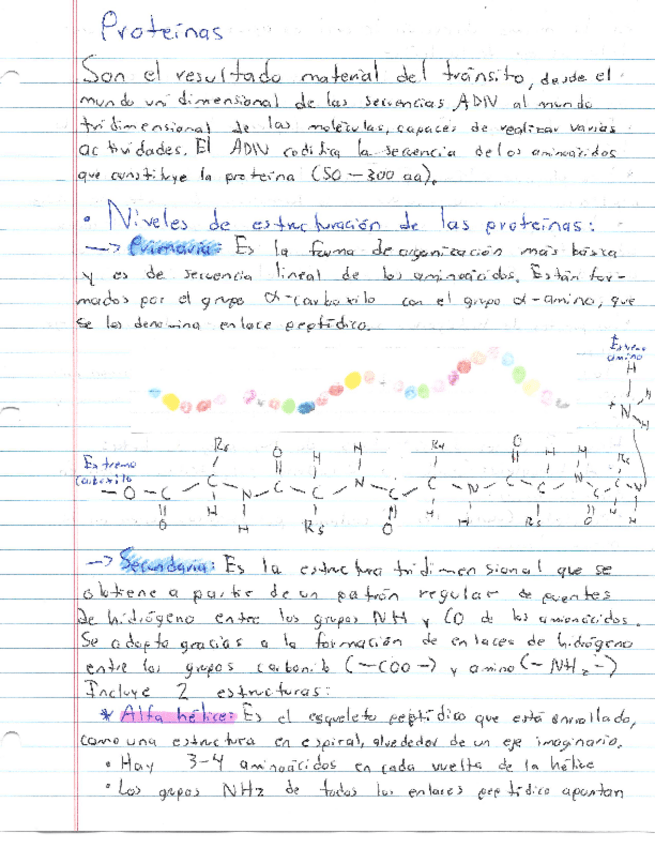 Proteínas
Son el resultado material del tránsito, desde el
mundo unidimensional de las secuencias ADN al mundo
tridimensional de las moléculas, capaces de realizar varias
actividades. El ADN codifica la secuencia de los aminoácidos
que constituye la proteína (50-300 aa).
• Niveles de estructuración de las proteínas:
—> Primaria: Es la forma de organización más básica
y es de secuencia lineal de los aminoácidos. Están for-
mados por el grupo α-carboxilo con el grupo α-amino, que
se les denomina enlace peptídico.
Extremo
amino
H
H
+N-H
R4 O H H R4 O H H R6
Extremo
carboxilo
-O-C-C-N-C-C-N-C-C-N-C-C-N-C-C-N
O H H R5 O H H R5 O H H
—> Secundaria: Es la estructura tridimensional que se
obtiene a partir de un patrón regular de puentes
de hidrógeno entre los grupos NH y CO de los aminoácidos.
Se adopta gracias a la formación de enlaces de hidrógeno
entre los grupos carbonilo (-COO-) y amino (-NH2-)
Incluye 2 estructuras:
* Alfa hélice: Es el esqueleto peptídico que está enrollado,
como una estructura en espiral, alrededor de un eje imaginario.
• Hay 3-4 aminoácidos en cada vuelta de la hélice
• Los grupos NH2 de todos los enlaces peptídico apuntan